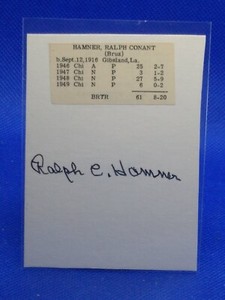 HAMNER, RALPH CONANT
(Brus)
b.Sept.12,1916 Gibsland,La.
1946 Chi A P 25 2-7
1947 Chi N P 3 1-2
1948 Chi N P 27 5-9
1949 Chi N P 6 0-2
BRTR 61 8-20
Ralph C. Hamner